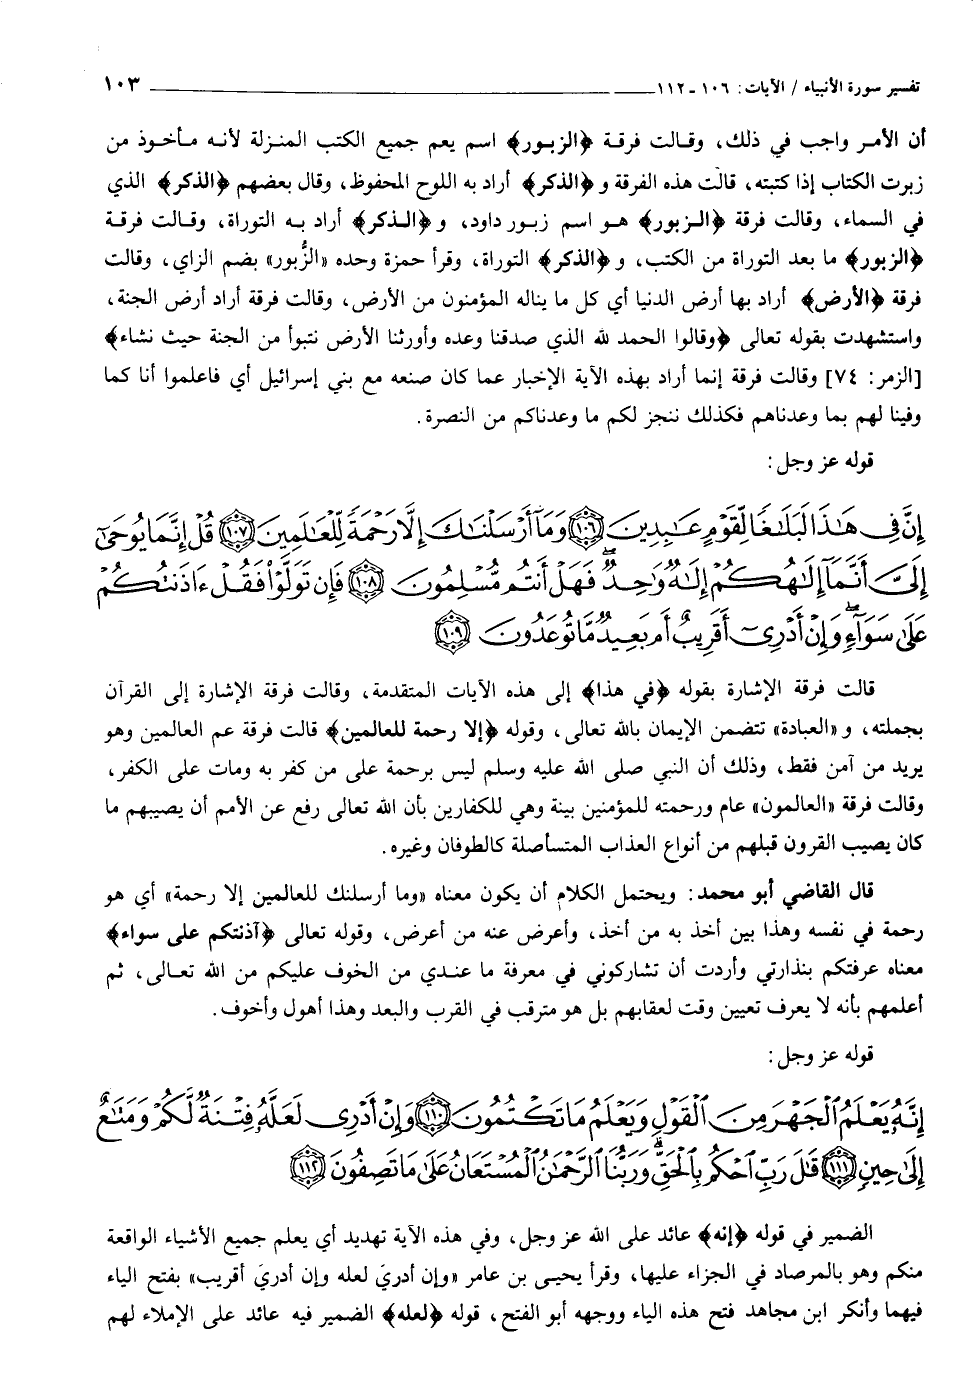 تفسير سورة الأنبياء / الآيات: ١٠٦ ـ ١١٢ ١٠٣
أن الأمر واجب في ذلك، وقالت فرقة ﴿الزبور﴾ اسم يعم جميع الكتب المنزلة لأنه مأخوذ من
زبرت الكتاب إذا كتبته، قالت هذه الفرقة و﴿الذكر﴾ أراد به اللوح المحفوظ، وقال بعضهم ﴿الذكر﴾ الذي
في السماء، وقالت فرقة ﴿الزبور﴾ هو اسم زبور داود، و﴿الذكر﴾ أراد به التوراة، وقالت فرقة
﴿الزبور﴾ ما بعد التوراة من الكتب، و﴿الذكر﴾ التوراة، وقرأ حمزة وحده «الزُّبور» بضم الزاي، وقالت
فرقة ﴿الأرض﴾ أراد بها أرض الدنيا أي كل ما يناله المؤمنون من الأرض، وقالت فرقة أراد أرض الجنة،
واستشهدت بقوله تعالى ﴿وقالوا الحمد لله الذي صدقنا وعده وأورثنا الأرض نتبوأ من الجنة حيث نشاء﴾
[الزمر: ٧٤] وقالت فرقة إنما أراد بهذه الآية الإخبار عما كان صنعه مع بني إسرائيل أي فاعلموا أنا كما
وفينا لهم بما وعدناهم فكذلك ننجز لكم ما وعدناكم من النصرة.
قوله عز وجل:
إِنَّ فِى هَٰذَا لَبَلَٰغًا لِّقَوْمٍ عَٰبِدِينَ ﴿١٠٦﴾ وَمَآ أَرْسَلْنَٰكَ إِلَّا رَحْمَةً لِّلْعَٰلَمِينَ ﴿١٠٧﴾ قُلْ إِنَّمَا يُوحَىٰٓ
إِلَىَّ أَنَّمَآ إِلَٰهُكُمْ إِلَٰهٌ وَٰحِدٌ ۖ فَهَلْ أَنتُم مُّسْلِمُونَ ﴿١٠٨﴾ فَإِن تَوَلَّوْا۟ فَقُلْ ءَاذَنتُكُمْ
عَلَىٰ سَوَآءٍ ۖ وَإِنْ أَدْرِىٓ أَقَرِيبٌ أَم بَعِيدٌ مَّا تُوعَدُونَ ﴿١٠٩﴾
قالت فرقة الإشارة بقوله ﴿في هذا﴾ إلى هذه الآيات المتقدمة، وقالت فرقة الإشارة إلى القرآن
بجملته، و«العبادة» تتضمن الإيمان بالله تعالى، وقوله ﴿إلا رحمة للعالمين﴾ قالت فرقة عم العالمين وهو
يريد من آمن فقط، وذلك أن النبي صلى الله عليه وسلم ليس برحمة على من كفر به ومات على الكفر،
وقالت فرقة «العالمون» عام ورحمته للمؤمنين بينة وهي للكفارين بأن الله تعالى رفع عن الأمم أن يصيبهم ما
كان يصيب القرون قبلهم من أنواع العذاب المتسأصلة كالطوفان وغيره.
قال القاضي أبو محمد: ويحتمل الكلام أن يكون معناه «وما أرسلنك للعالمين إلا رحمة» أي هو
رحمة في نفسه وهذا بين أخذ به من أخذ، وأعرض عنه من أعرض، وقوله تعالى ﴿آذنتكم على سواء﴾
معناه عرفتكم بنذارتي وأردت أن تشاركوني في معرفة ما عندي من الخوف عليكم من الله تعالى، ثم
أعلمهم بأنه لا يعرف تعيين وقت لعقابهم بل هو مترقب في القرب والبعد وهذا أهول وأخوف.
قوله عز وجل:
إِنَّهُۥ يَعْلَمُ ٱلْجَهْرَ مِنَ ٱلْقَوْلِ وَيَعْلَمُ مَا تَكْتُمُونَ ﴿١١٠﴾ وَإِنْ أَدْرِى لَعَلَّهُۥ فِتْنَةٌ لَّكُمْ وَمَتَٰعٌ
إِلَىٰ حِينٍ ﴿١١١﴾ قَٰلَ رَبِّ ٱحْكُم بِٱلْحَقِّ ۗ وَرَبُّنَا ٱلرَّحْمَٰنُ ٱلْمُسْتَعَانُ عَلَىٰ مَا تَصِفُونَ ﴿١١٢﴾
الضمير في قوله ﴿إنه﴾ عائد على الله عز وجل، وفي هذه الآية تهديد أي يعلم جميع الأشياء الواقعة
منكم وهو بالمرصاد في الجزاء عليها، وقرأ يحيى بن عامر «وإن أدريَ لعله وإن أدريَ أقريب» بفتح الياء
فيهما وأنكر ابن مجاهد فتح هذه الياء ووجهه أبو الفتح، قوله ﴿لعله﴾ الضمير فيه عائد على الإملاء لهم